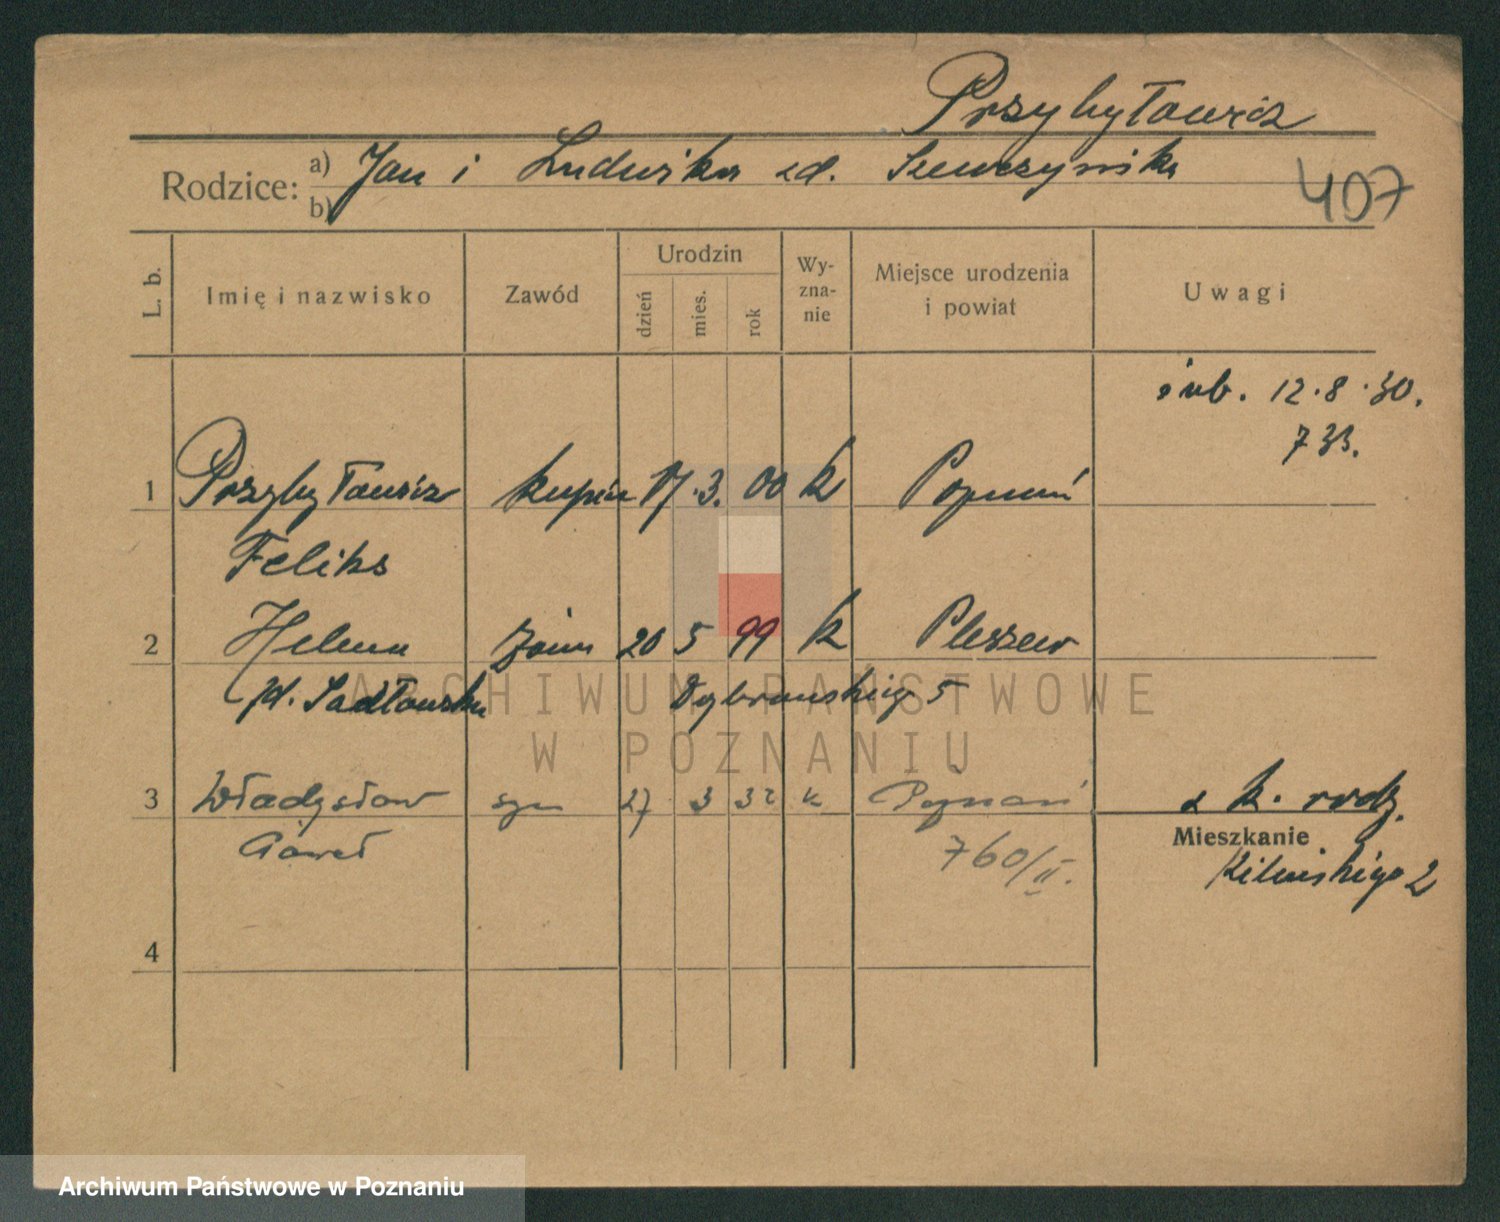 Przybyłowicz
Rodzice: a) Jan i Ludwika zd.
b)
407
L. b.
Imię i nazwisko
Zawód
Urodzin
dzień
mies.
rok
Wy-
zna-
nie
Miejsce urodzenia
i powiat
Uwagi
ślub. 12.8.30.
733.
1 Przybyłowicz kupiec 17.3.00 k Poznań
Feliks
2 Helena żona 20 5 99 k Pleszew
zd. Sadłowska Dąbrowskiego 5
3 Władysław syn 27 3 32 k Poznań
Paweł
760/II.
z k. rodz.
Mieszkanie
Kilińskiego 2
4
ARCHIWUM PAŃSTWOWE
W POZNANIU
Archiwum Państwowe w Poznaniu